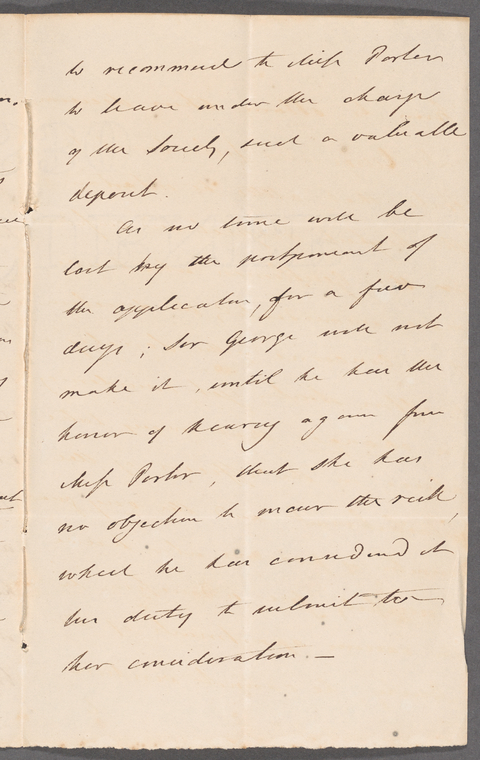 to recommend to Miss Porter
to leave under the charge
of the Society, such a valuable
deposit.
As no time will be
lost by the postponement of
the application, for a few
days; Sir George will not
make it, until he has the
honor of hearing again from
Miss Porter, that she has
no objection to incur the risk,
which he has considered it
his duty to submit to
her consideration. —